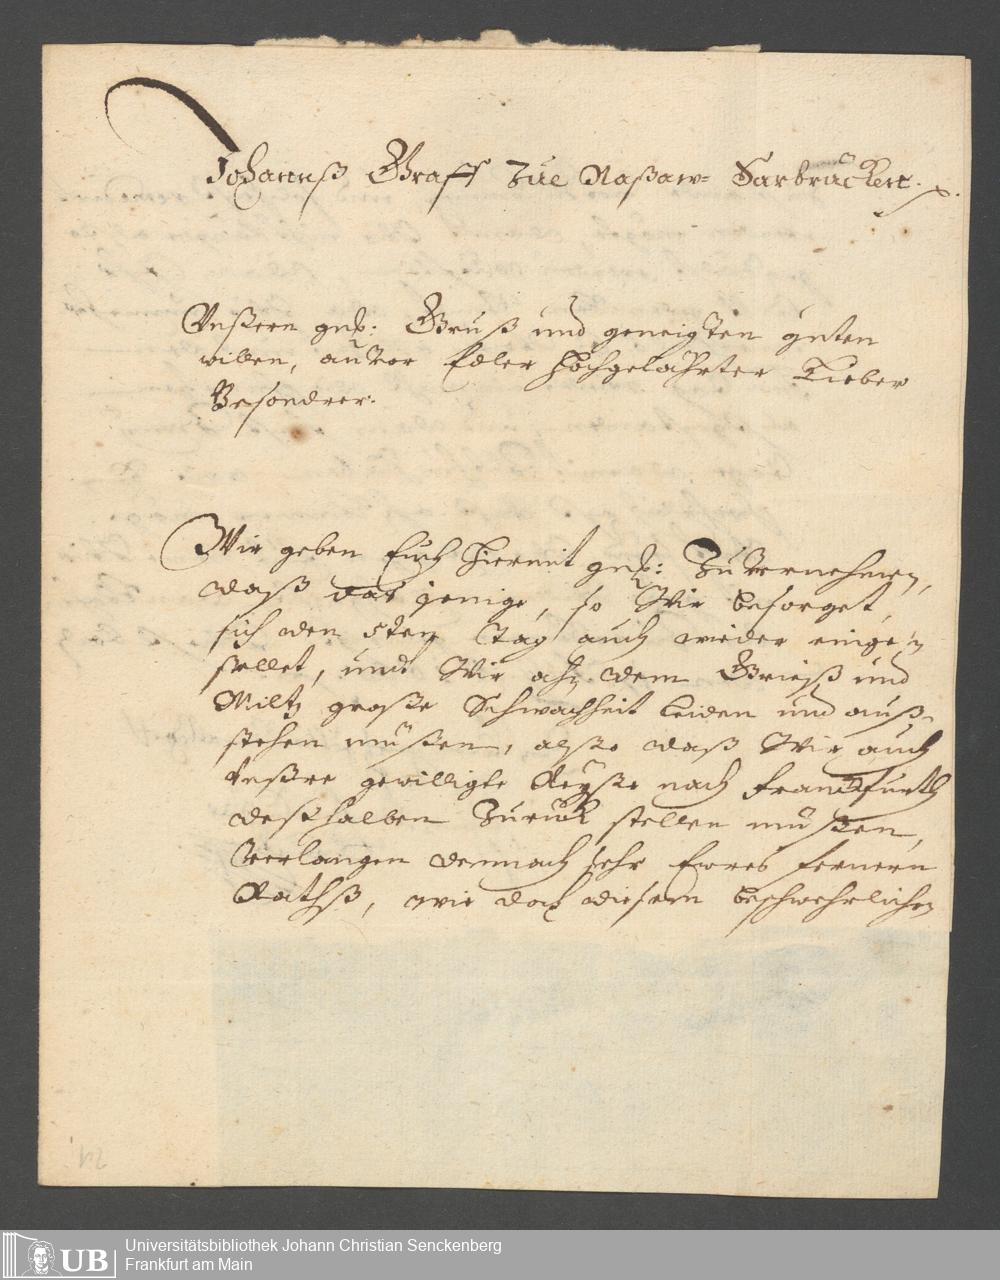 Johannß Graff zue Naßaw= Sarbrücken.
Vnßern gnd: Gruß und geneigten guten
willen, zuvor Edler Hochgelährter Lieber
Besondrer.
Wir geben Euch hiermit gnd: Zuvernehmen,
daß das jenige, so Wir besorget,
sich den 5ten Tag auch wieder einge=
stellet, und Wir ahn dem Grieß und
Miltz große Schwachheit leiden und auß=
stehen müßen, alßo daß Wir auch
Vnßre gewilligte Reyße nach Franckfurth
deßhalben Zurück stellen müßen,
Verlangen demnach sehr Ewres fernern
Rathß, wie doch diesem beschwehrlichen
UB
Universitätsbibliothek Johann Christian Senckenberg
Frankfurt am Main